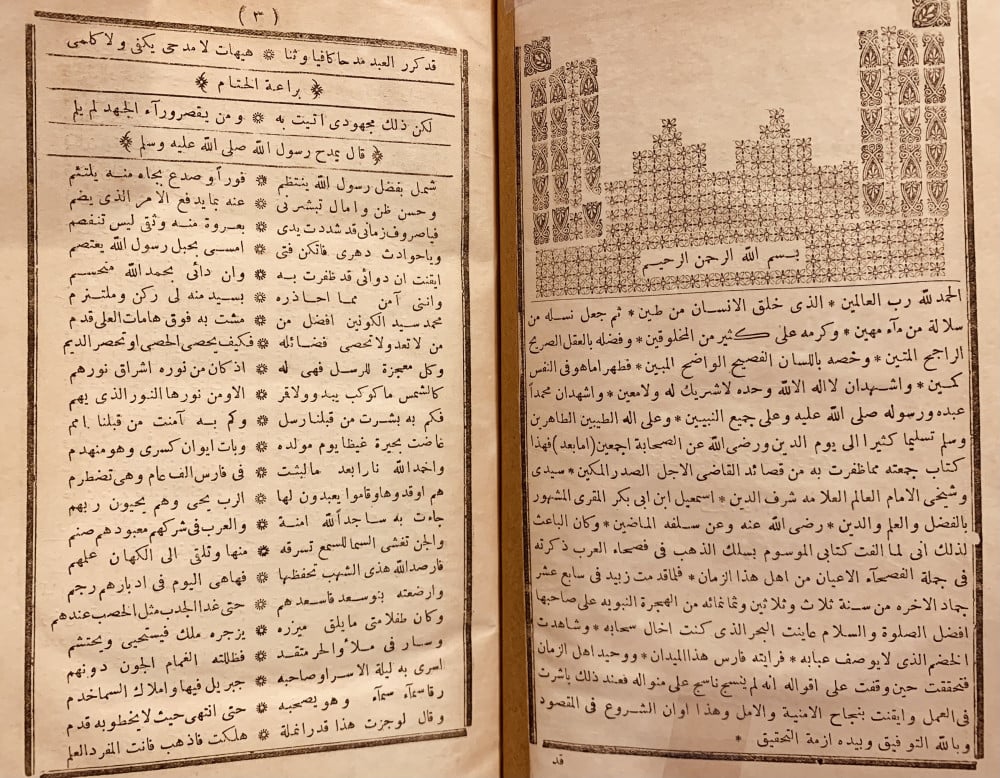 بسم الله الرحمن الرحيم
الحمد لله رب العالمين * الذى خلق الانسان من طين * ثم جعل نسله من
سلالة من مآء مهين * وكرمه على كثير من المخلوقين * وفضله بالعقل الصريح
الراجح المتين * وخصه باللسان الفصيح الواضح المبين * فطهر اماهو فى النفس
كمين * واشهدان لااله الاالله وحده لاشريك له ولامعين * واشهدان محمداً
عبده ورسوله صلى الله عليه وعلى جميع النبيين * وعلى اله الطيبين الطاهرين
وسلم تسليما كثيرا الى يوم الدين ورضى الله عن الصحابة اجمعين (امابعد) فهذا
كتاب جمعته مماظفرت به من قصائد القاضى الاجل الصدر المكين * سيدى
وشيخى الامام العالم العلامه شرف الدين * اسمعيل ابن ابى بكر المقرى المشهور
بالفضل والعلم والدين * رضى الله عنه وعن سلفه الماضين * وكان الباعث
لذلك انى لما الفت كتابى الموسوم بسلك الذهب فى فصحاء العرب ذكرته
فى جملة الفصحآء الاعيان من اهل هذا الزمان * فلماقدمت زبيد فى سابع عشر
جماد الاخره من سنة ثلاث وثلاثين وثمانمائه من الهجرة النبويه على صاحبها
افضل الصلوة والسلام عاينت البحر الذى كنت اخال سحابه * وشاهدت
الخضم الذى لايوصف عبابه * فرايته فارس هذا الميدان * ووحيد اهل الزمان
فتحققت حين وقفت على اقواله انه لم ينسج ناسج على منواله فعند ذلك باشرت
فى العمل وايقنت بنجاح الامنية والامل وهذا اوان الشروع فى المقصود
وبالله التوفيق وبيده ازمة التحقيق *
قد
( ٣ )
قد كرر العبد مدحا كافيا وثنا * هيهات لا مدحى يكفى ولا كلمى
براعة الختام
لكن ذلك مجهودى اتيت به * ومن يقصر ورآء الجهد لم يلم
قال يمدح رسول الله صلى الله عليه وسلم
شمل بفضل رسول الله ينتظم * فوراً وصدع بجاه منه يلتئم
وحسن ظن وامال تبشرنى * عنه بما يدفع الامر الذى يضم
فياصروف زمانى قد شددت يدى * بعروة منه وثقى ليس تنفصم
وياحوادث دهرى فاتكن فتى * امسى بحبل رسول الله يعتصم
ايقنت ان دوائى قد ظفرت به * وان دائى بحمد الله منحسم
وانى آمن مما احاذره * بسيد منه لى ركن وملتزم
محمد سيد الكونين افضل من * مشت به فوق هامات العلى قدم
من لا تعد ولا تحصى فضائله * فكيف يحصى الحصى او تحصر الديم
وكل معجزة للرسل فهى له * اذ كان من نوره اشراق نورهم
كالشمس ما كوكب يبدو ولاقمر * الا ومن نورها النور الذى بهم
فكم به بشرت من قبلنا رسل * وكم به آمنت من قبلنا امم
غاضت بحيرة غيظا يوم مولده * وبات ايوان كسرى وهو منهدم
واخمد الله نارا بعد مالبثت * فى فارس الف عام وهى تضطرم
هم اوقدوها وقاموا يعبدون لها * الرب يحيى وهم يحيون ربهم
جاءت به ساجداً لله امنة * والعرب فى شركهم معبودهم صنم
والجن تغشى السما للسمع تسرقه * منها وتلقى الى الكهان علمهم
فارصد الله هذى الشهب تحفظها * فهاهى اليوم فى ادبارهم رجم
وارضعته بنو سعد فاسعدهم * حتى غدا الجدب مثل الخصب عندهم
وكان طفلا متى مايلق ميزره * يزجره ملك فيستحيى ويحتشم
وسار فى ملأ والحر متقد * فظللته الغمام الجون دونهم
اسرى به ليلة الاسرا وصاحبه * جبريل فيها واملاك السما خدم
رقا سمآء سمآء وهو يصحبه * حتى انتهى حيث لا يخطو به قدم
وقال لو جزت هذا قدر انملة * هلكت فاذهب فانت المفرد العلم